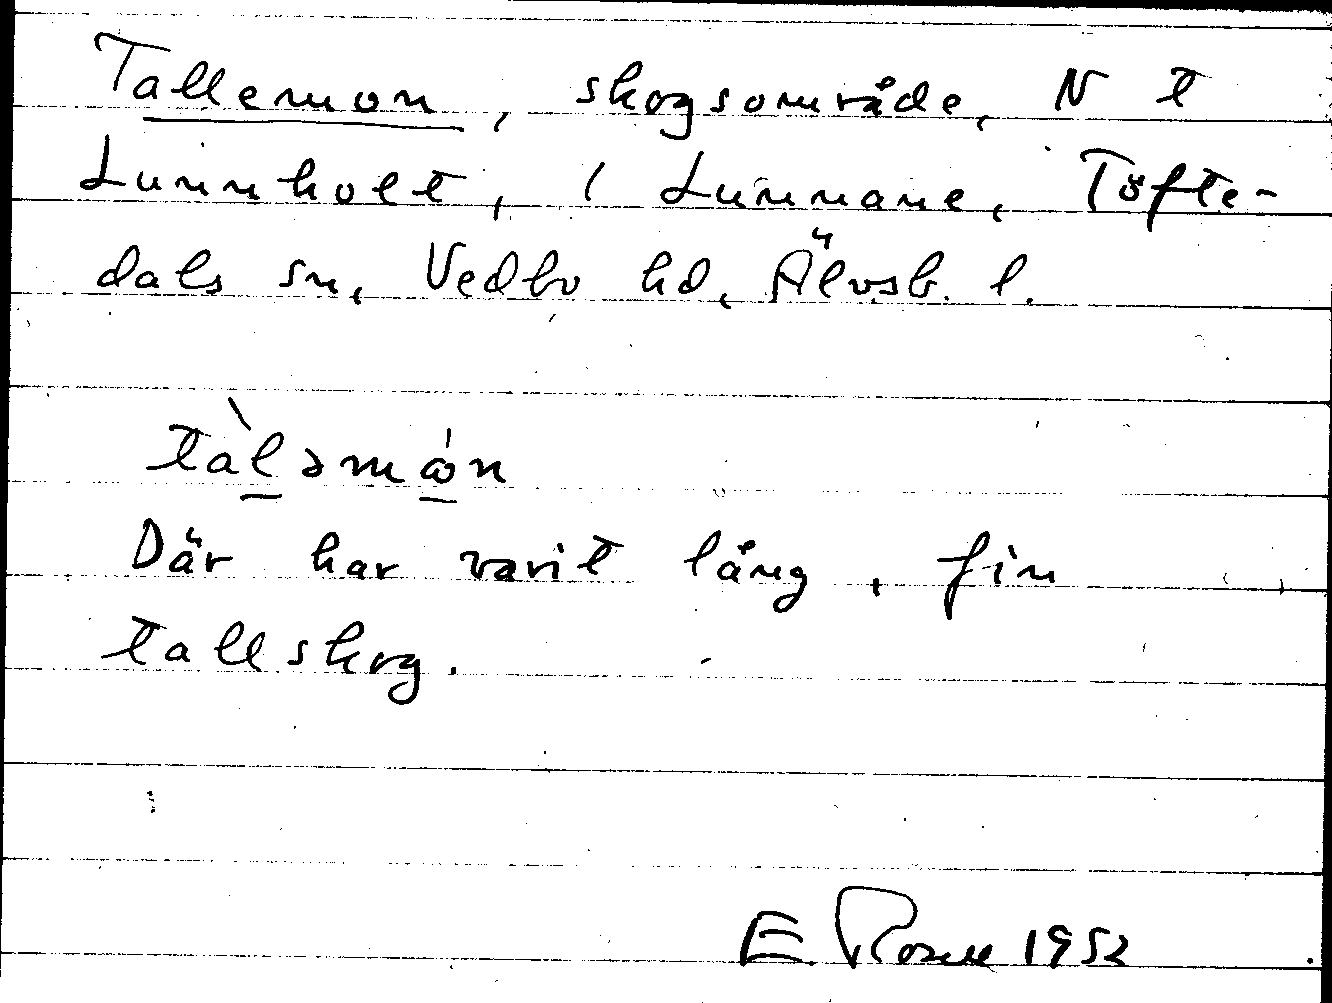 Tallemon, skogsområde, N t
Lunnholt, 1 Lunnane, Töfte-
dals sn, Vedbo hd, Älvsb. l.
tàləmón
Där har varit lång, fin
tallskog.
E. Rosell 1952